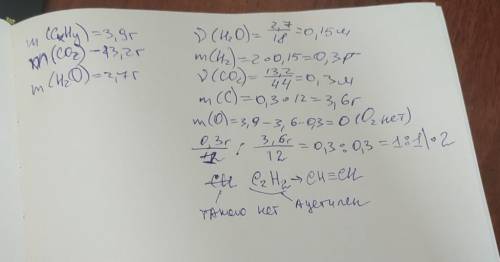 m(CxHy)=3,9г
m(CO₂)-13,2г
m(H₂O)=2,7г
ν(H₂O)=2,7/18=0,15м
m(H₂)=2∘0,15=0,3г
ν(CO₂)=13,2/44=0,3м
m(C)=0,3∘12=3,6г
m(O)=3,9-3,6-0,3=0 (O₂ нет)
0,3г/1 : 3,6г/12=0,3:0,3=1:1|∘2
CH C₂H₂→CH≡CH
такого нет Ацетилен